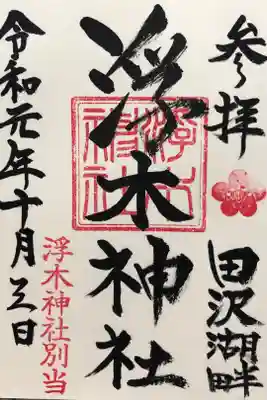 参拝
田沢湖畔
浮木神社
浮木神社
令和元年十月三日
浮木神社別当